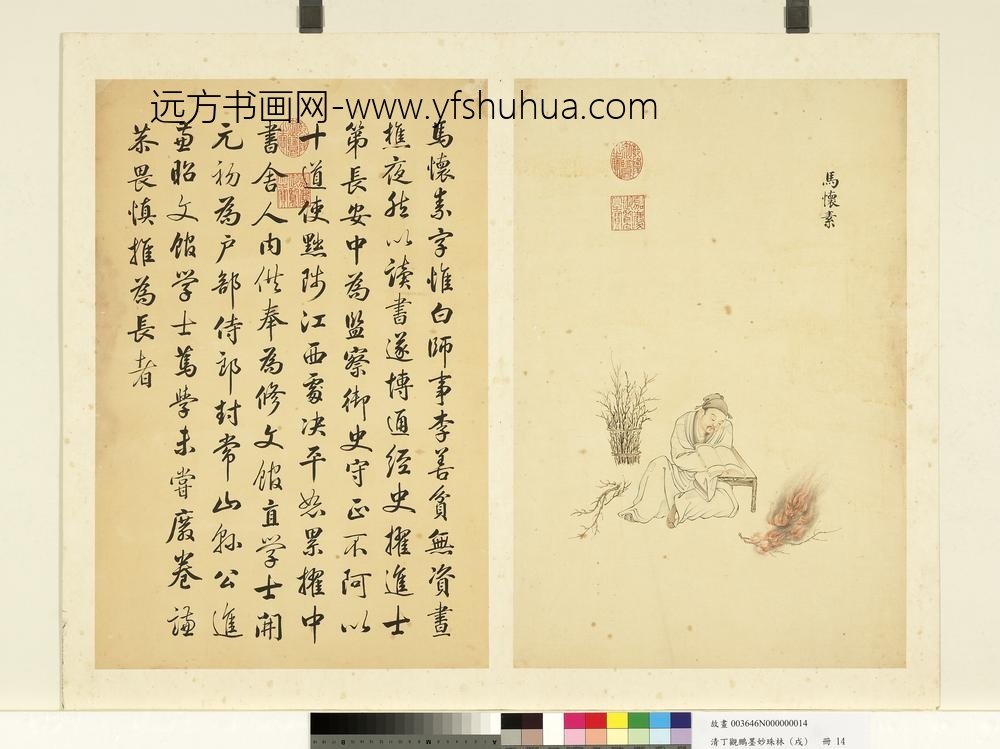 远方书画网-www.yfshuhua.com
馬懷素
馬懷素字惟白師事李善貧無資晝
樵夜然以讀書遂博通經史擢進士
第長安中為監察御史守正不阿以
十道使黜陟江西處决平恕累擢中
書舍人內供奉為修文館直学士開
元初為户部侍郎封常山縣公進
兼昭文館学士篤學未嘗廢卷謙
恭畏慎推為長者
故畫 003646N000000014
清丁觀鵬墨妙珠林（戌） 冊 14